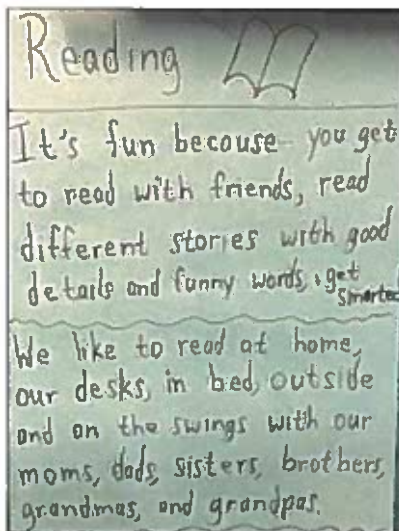 Reading
It's fun becouse you get
to read with friends, read
different stories with good
details and funny words, & get
smarter
We like to read at home,
our desks, in bed, outside
and on the swings with our
moms, dads, sisters, brothers,
grandmas, and grandpas.